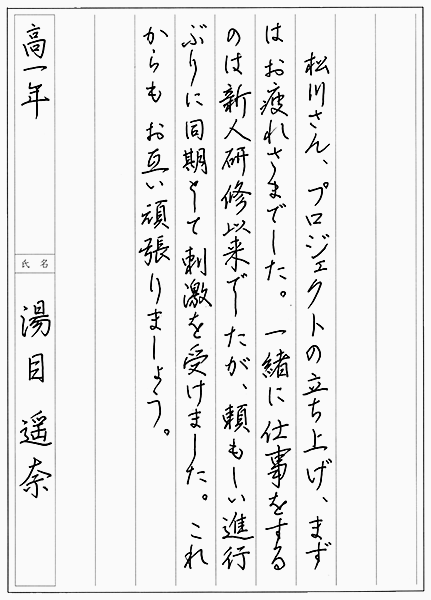 松川さん、プロジェクトの立ち上げ、まず
はお疲れさまでした。一緒に仕事をする
のは新人研修以来でしたが、頼もしい進行
ぶりに同期として刺激を受けました。これ
からもお互い頑張りましょう。
高一年
氏名
湯目 遥奈